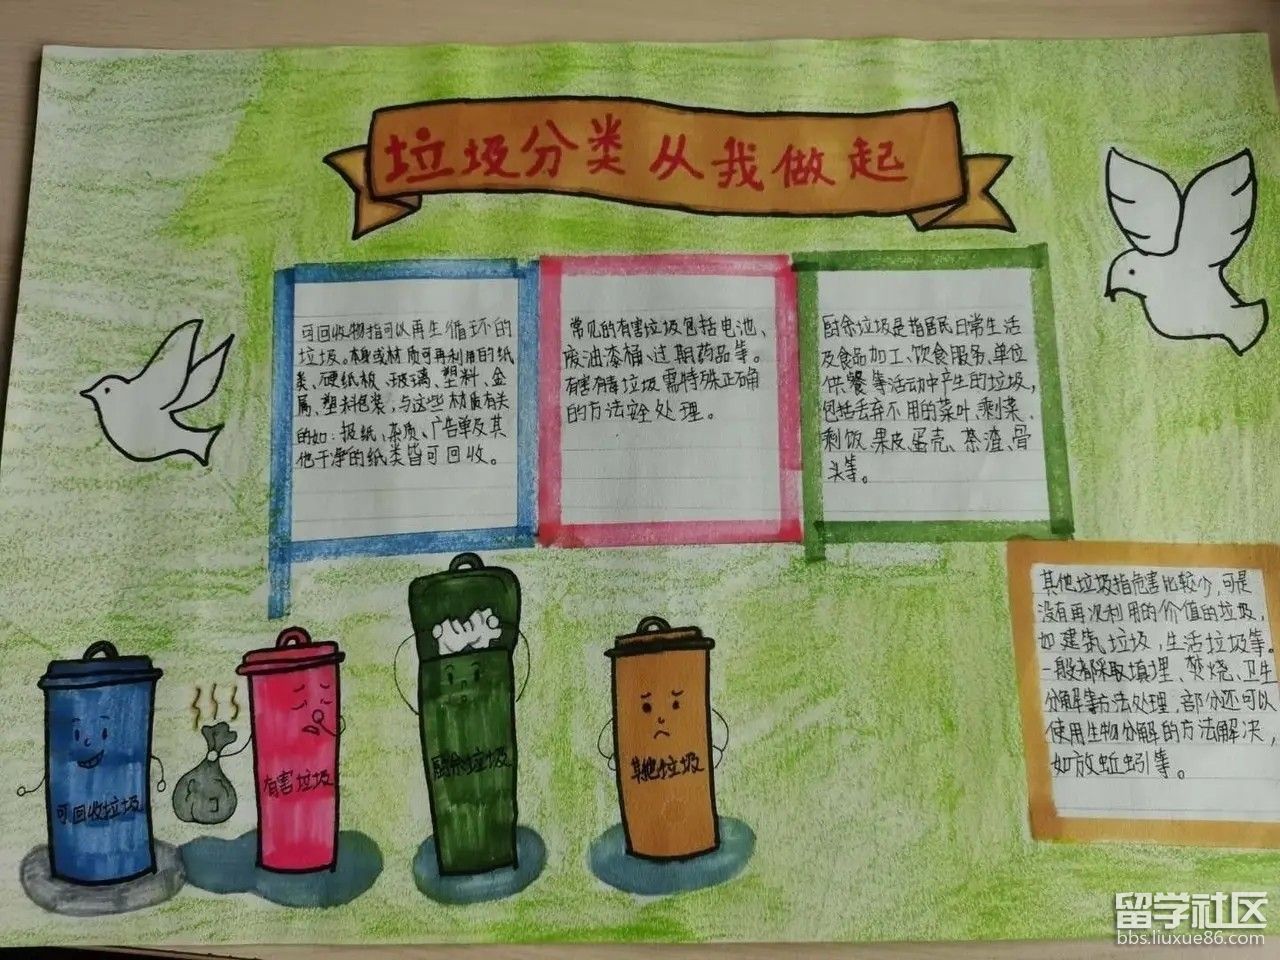 垃圾分类从我做起
可回收物指可以再生循环的
垃圾。本身或材质可再利用的纸
类、硬纸板、玻璃、塑料、金
属、塑料包装，与这些材质有关
的如：报纸、杂质、广告单及其
他干净的纸类皆可回收。
常见的有害垃圾包括电池、
废油漆桶、过期药品等。
有害有毒垃圾需特殊正确
的方法安全处理。
厨余垃圾是指居民日常生活
及食品加工、饮食服务、单位
供餐等活动中产生的垃圾，
包括丢弃不用的菜叶、剩菜、
剩饭、果皮、蛋壳、茶渣、骨
头等。
其他垃圾指危害比较少，可是
没有再次利用的价值的垃圾，
如建筑垃圾，生活垃圾等。
一般都采取填埋、焚烧、卫生
分解等方法处理，部分还可以
使用生物分解的方法解决，
如放蚯蚓等。
可回收垃圾
有害垃圾
厨余垃圾
其他垃圾
留学社区
bbs.liuxue86.com